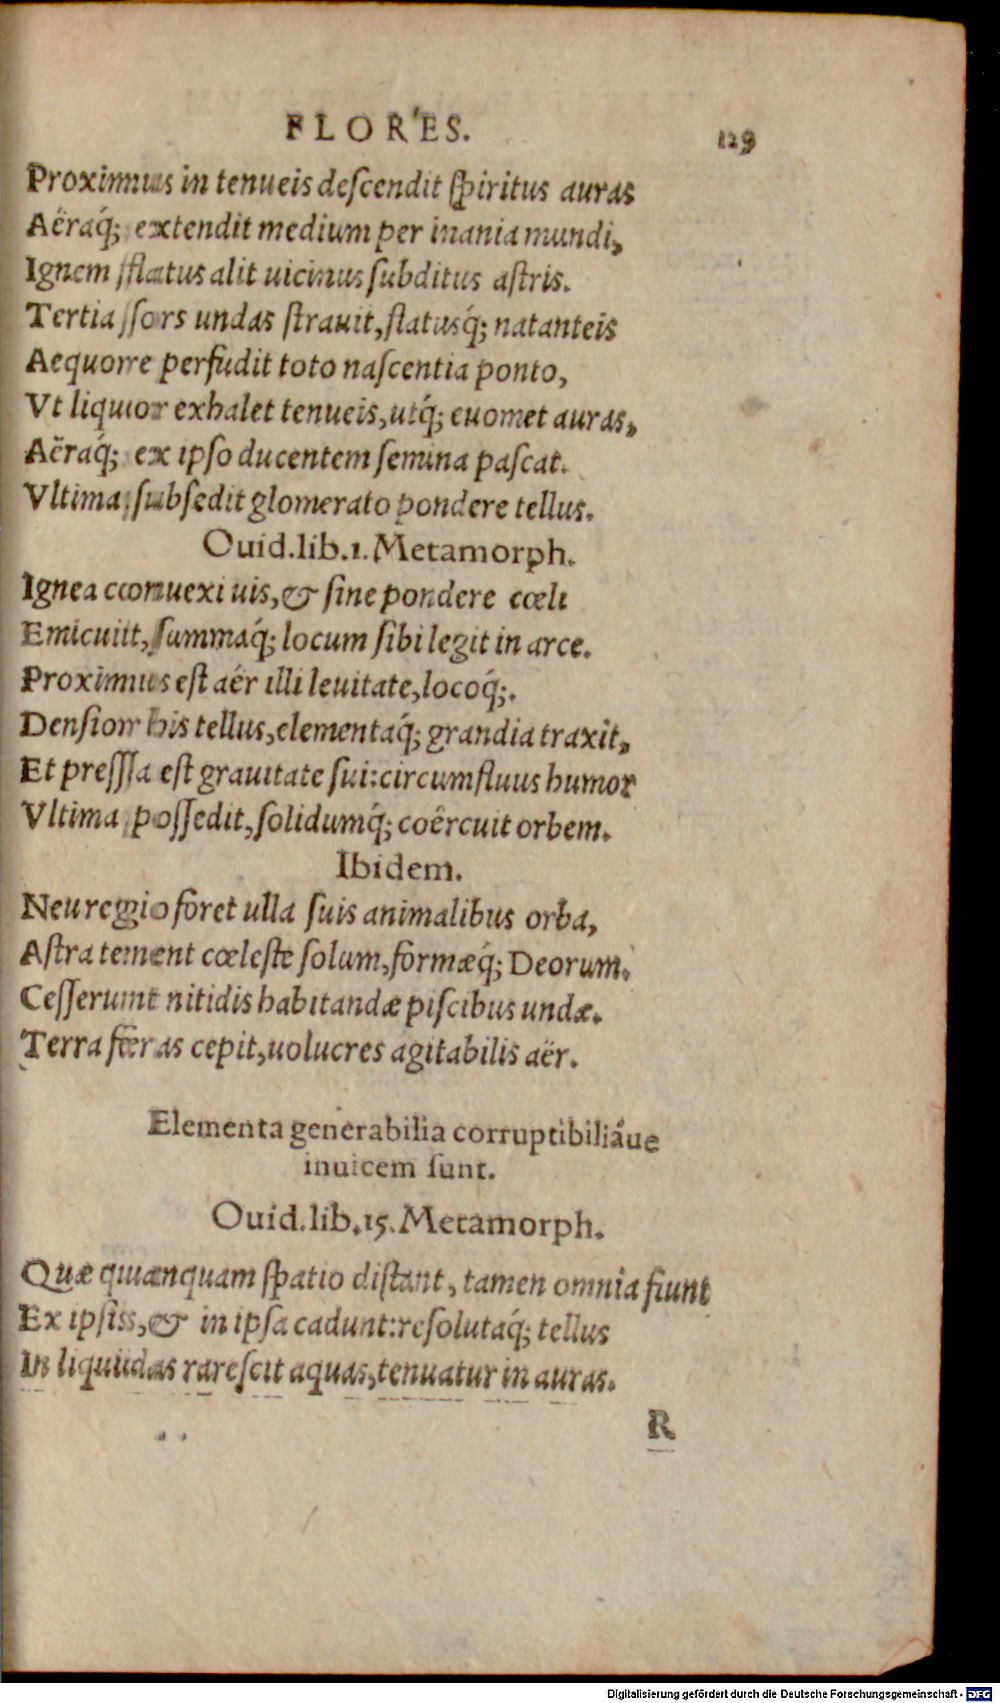 FLORES. 129
Proximus in tenueis deſcendit ſpiritus auras
Aëraq́; extendit medium per inania mundi,
Ignem flatus alit uicinus ſubditus aſtris.
Tertia ſors undas ſtrauit, flatusq́; natanteis
Aequore perfudit toto naſcentia ponto,
Vt liquor exhalet tenueis, utq́; euomet auras,
Aëraq́; ex ipſo ducentem ſemina paſcat.
Vltima ſubſedit glomerato pondere tellus.
Ouid. lib. 1. Metamorph.
Ignea conuexi uis, & ſine pondere cœli
Emicuit, ſummaq́; locum ſibi legit in arce.
Proximus eſt aër illi leuitate, locoq́;.
Denſior his tellus, elementaq́; grandia traxit,
Et preſſa eſt grauitate ſui: circumfluus humor
Vltima poſſedit, ſolidumq́; coërcuit orbem.
Ibidem.
Neu regio foret ulla ſuis animalibus orba,
Aſtra tenent cœleſte ſolum, formæq́; Deorum.
Ceſſerunt nitidis habitandæ piſcibus undæ.
Terra feras cepit, uolucres agitabilis aër.
Elementa generabilia corruptibiliáue
inuicem ſunt.
Ouid. lib. 15. Metamorph.
Quæ quanquam ſpatio diſtant, tamen omnia fiunt
Ex ipſis, & in ipſa cadunt: reſolutaq́; tellus
In liquidas rareſcit aquas, tenuatur in auras.
R
Digitalisierung gefördert durch die Deutsche Forschungsgemeinschaft - DFG